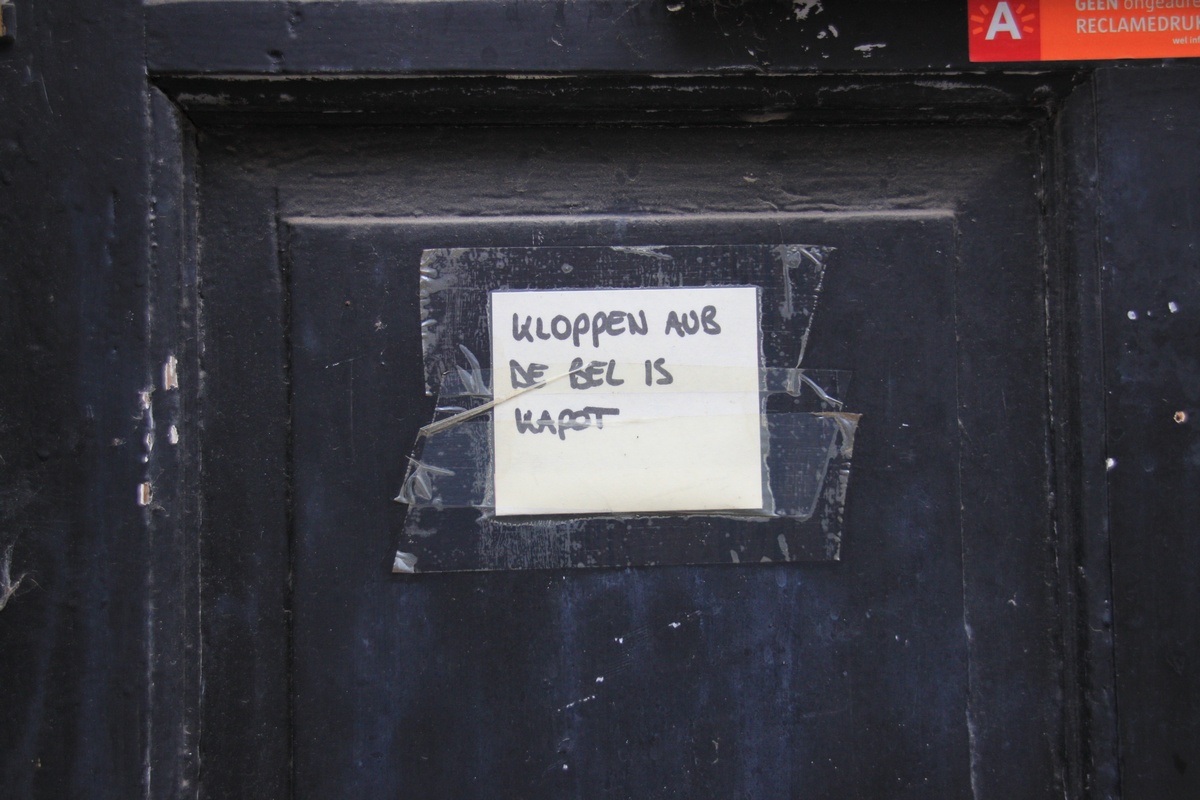 A
GEEN
RECLAMEDRU
wel in
KLOPPEN AUB
DE BEL IS
KAPOT